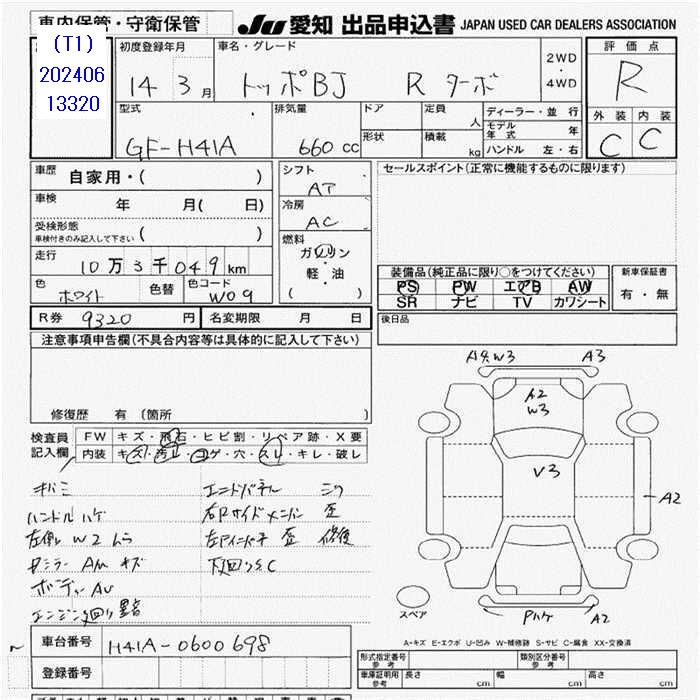 車内保管・守衛保管
JU 愛知 出品申込書 JAPAN USED CAR DEALERS ASSOCIATION
(T1)
202406
13320
初度登録年月
14 3 月
車名・グレード
トッポBJ R ターボ
2WD
・
4WD
評価点
R
外装 内装
C C
型式
GF-H41A
排気量
660 cc
ドア
形状
定員 人
積載 kg
ディーラー・並行
モデル年式 年
ハンドル 左・右
車歴 自家用・( )
車検 年 月( 日)
受検形態
車検付きのみ記入して下さい ( )
走行
10万3千049 km
色 ホワイト 色替 色コード W09
シフト
AT
冷房
AC
燃料
ガソリン
・
軽・油
( )
セールスポイント(正常に機能するものに限ります)
装備品(純正品に限り○をつけてください)
PS PW エアB AW
SR ナビ TV カワシート
新車保証書
有・無
R券 9320 円 名変期限 月 日
後日品
注意事項申告欄(不具合内容等は具体的に記入して下さい)
修復歴 有 (箇所 )
検査員
記入欄
FW キズ・飛石・ヒビ割・リペア跡・X要
内装 キズ・汚レ・コゲ・穴・スレ・キレ・破レ
キバミ
ハンドル ハゲ
左側 W2 ムラ
ボディー AU
エンドパネル
右Rサイドメンバー 歪
修復
下廻り S C
A4,W3
A3
A2
W3
V3
A2
A2
スペア
A-キズ E-エクボ U-凹み W-補修跡 S-サビ C-腐食 XX-交換済
車台番号 H41A-0600698
登録番号
形式指定番号
参考
類別区分番号
参考
車庫証明用
参考
長さ cm 幅 cm 高さ cm